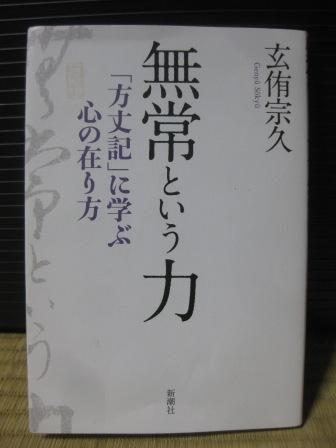 玄侑宗久
Genyū Sōkyū
無常という力
「方丈記」に学ぶ
心の在り方
無常という力
新潮社